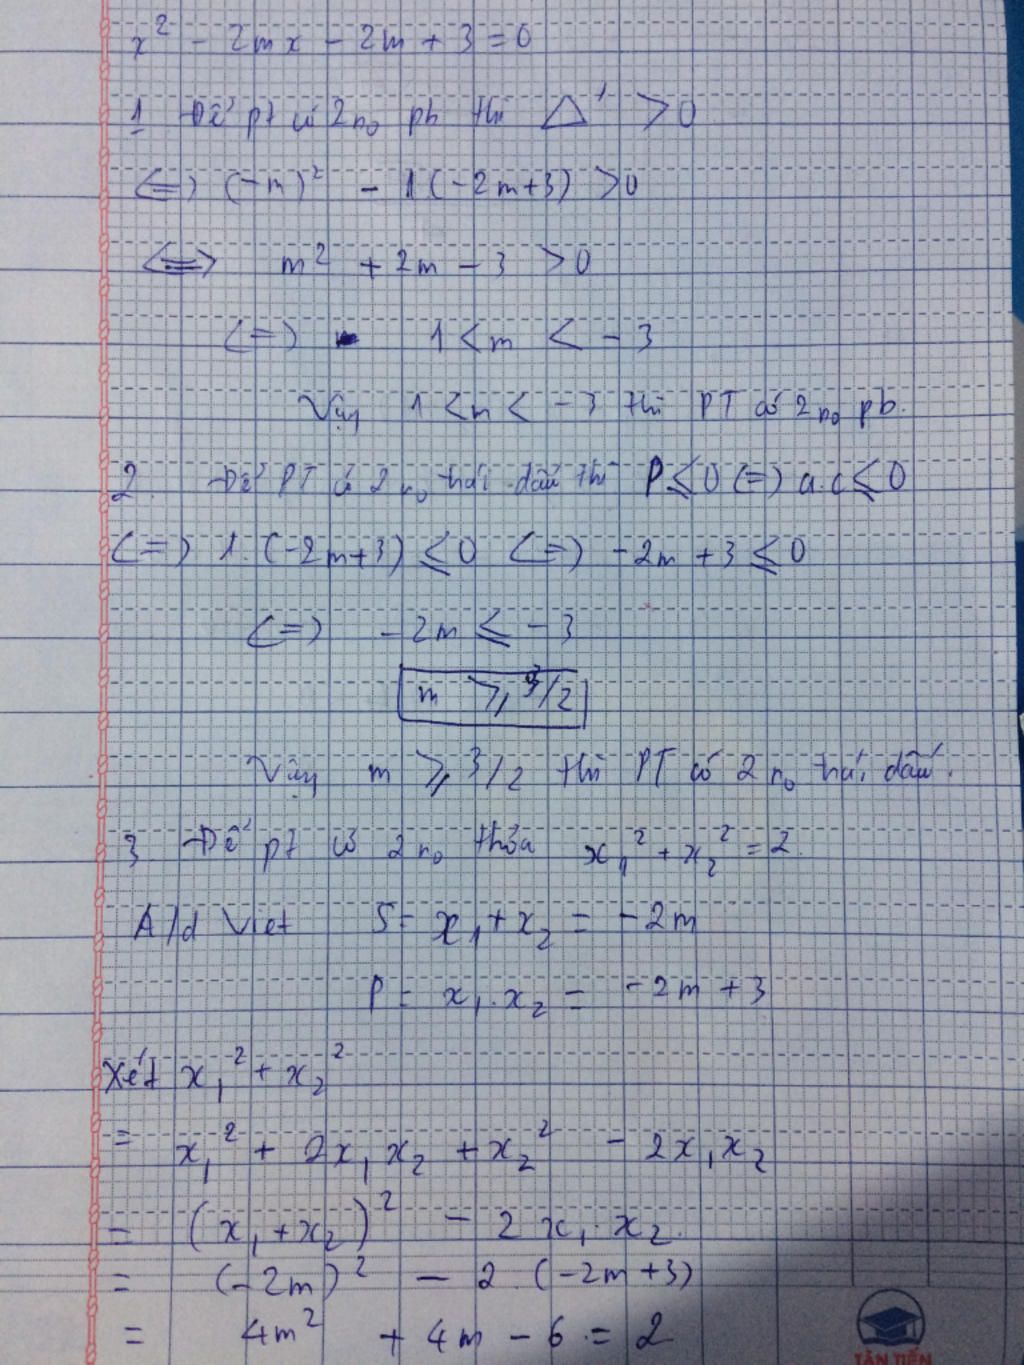 x² - 2mx - 2m + 3 = 0
1 Để pt có 2 n₀ pb thì △' > 0
<=> (-m)² - 1(-2m+3) > 0
<=> m² + 2m - 3 > 0
<=> 1 < m < -3
Vậy 1 < m < -3 thì PT có 2 n₀ pb.
2. Để PT có 2 n₀ trái dấu thì P ≤ 0 <=> a.c ≤ 0
<=> 1.(-2m+3) ≤ 0 <=> -2m + 3 ≤ 0
<=> -2m ≤ -3
m ≥ 3/2
Vậy m ≥ 3/2 thì PT có 2 n₀ trái dấu.
3 Để pt có 2 n₀ thỏa x₁² + x₂² = 2.
A/d Viet S = x₁ + x₂ = -2m
P = x₁.x₂ = -2m + 3
Xét x₁² + x₂²
= x₁² + 2x₁x₂ + x₂² - 2x₁x₂
= (x₁+x₂)² - 2x₁.x₂.
= (-2m)² - 2.(-2m+3)
= 4m² + 4m - 6 = 2
TÂN TIẾN